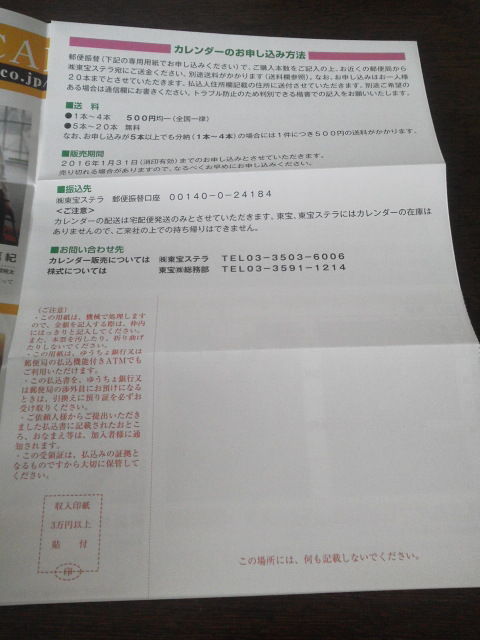 CA
co.jp/
カレンダーのお申し込み方法
郵便振替(下記の専用用紙でお申し込みください)で、ご購入本数をご記入の上、お近くの郵便局から
㈱東宝ステラ宛にご送金ください。別途送料がかかります(送料欄参照)。なお、お申し込みはお一人様
20本までとさせていただきます。払込人住所欄記載の住所に送付させていただきます。別途ご希望の
ある場合は通信欄にお書きください。トラブル防止のため判別できる楷書での記入をお願いいたします。
■送 料
●1本〜4本 500円均一(全国一律)
●5本〜20本 無料
なお、お申し込みが5本以上でも分納(1本〜4本)の場合には1件につき500円の送料がかかります。
■販売期間
2016年1月31日(消印有効)までのお申し込みとさせていただきます。
売り切れる場合がありますので、なるべくお早めにお申し込みください。
■振込先
㈱東宝ステラ 郵便振替口座 00140-0-24184
<ご注意>
カレンダーの配送は宅配便発送のみとさせていただきます。東宝、東宝ステラにはカレンダーの在庫は
ありませんので、ご来社の上での持ち帰りはできません。
■お問い合わせ先
カレンダー販売については ㈱東宝ステラ TEL03-3503-6006
株式については 東宝㈱総務部 TEL03-3591-1214
(ご注意)
・この用紙は、機械で処理します
ので、金額を記入する際は、枠内
にはっきりと記入してください。
また、本票を汚したり、折り曲げ
たりしないでください。
・この用紙は、ゆうちょ銀行又は
郵便局の払込機能付きATMでも
ご利用いただけます。
・この払込書を、ゆうちょ銀行又
は郵便局の渉外員にお預けになる
ときは、引換えに預り証を必ずお
受け取りください。
・ご依頼人様からご提出いただき
ました払込書に記載されたおとこ
ろ、おなまえ等は、加入者様に通
知されます。
・この受領証は、払込みの証拠と
なるものですから大切に保管して
ください。
収入印紙
3万円以上
貼 付
印
この場所には、何も記載しないでください。